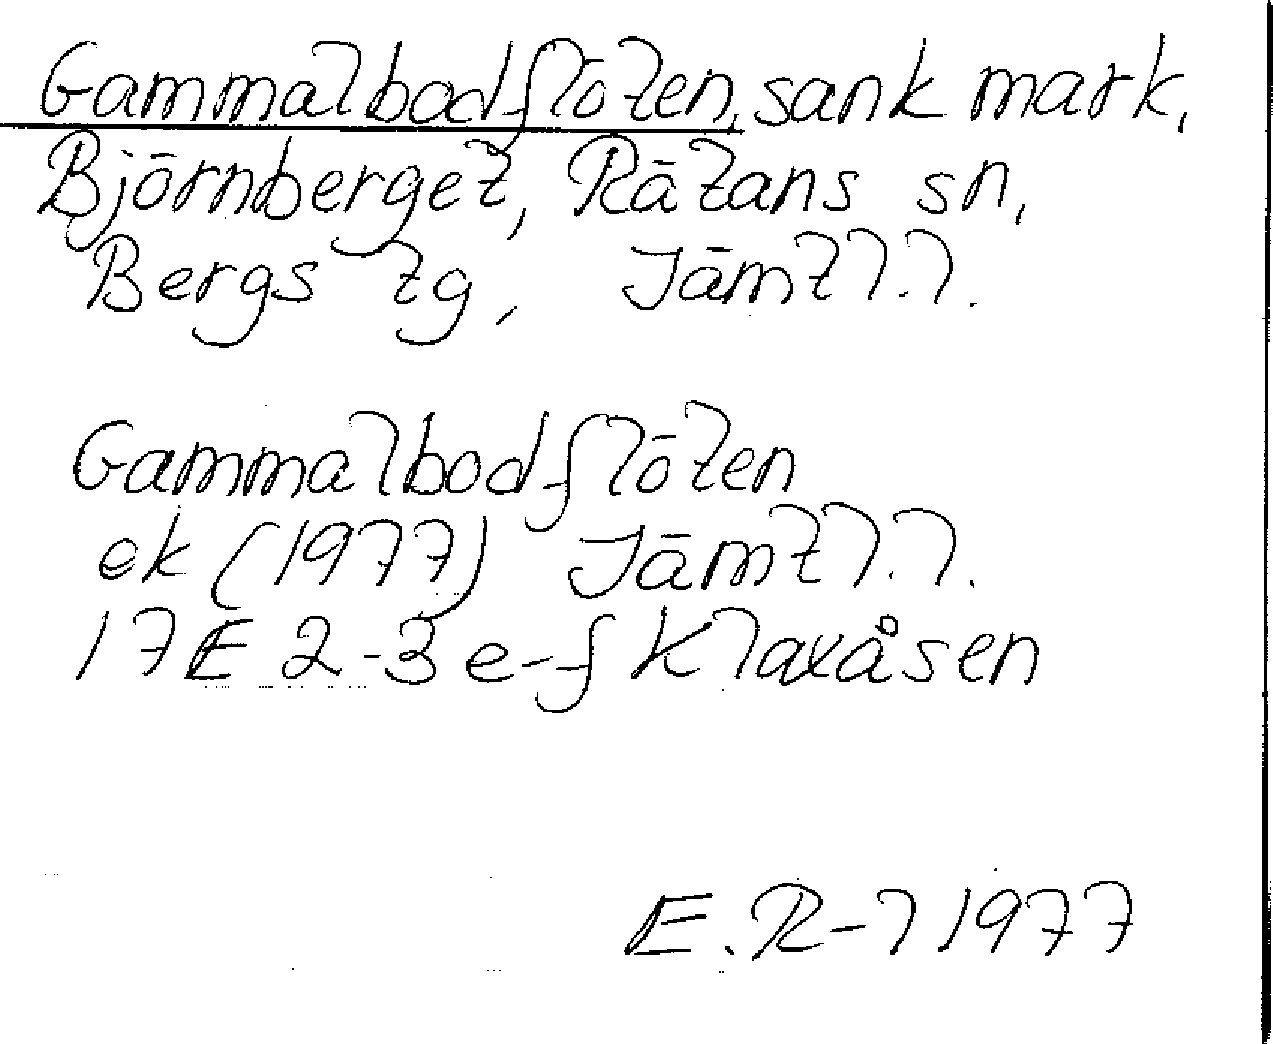 Gammalbodflöten, sank mark,
Björnberget, Rätans sn,
Bergs tg, Jämtl.l.
Gammalbodflöten
ek (1977) Jämtl.l.
17E 2-3 e-f Klaxåsen
E. R-l 1977